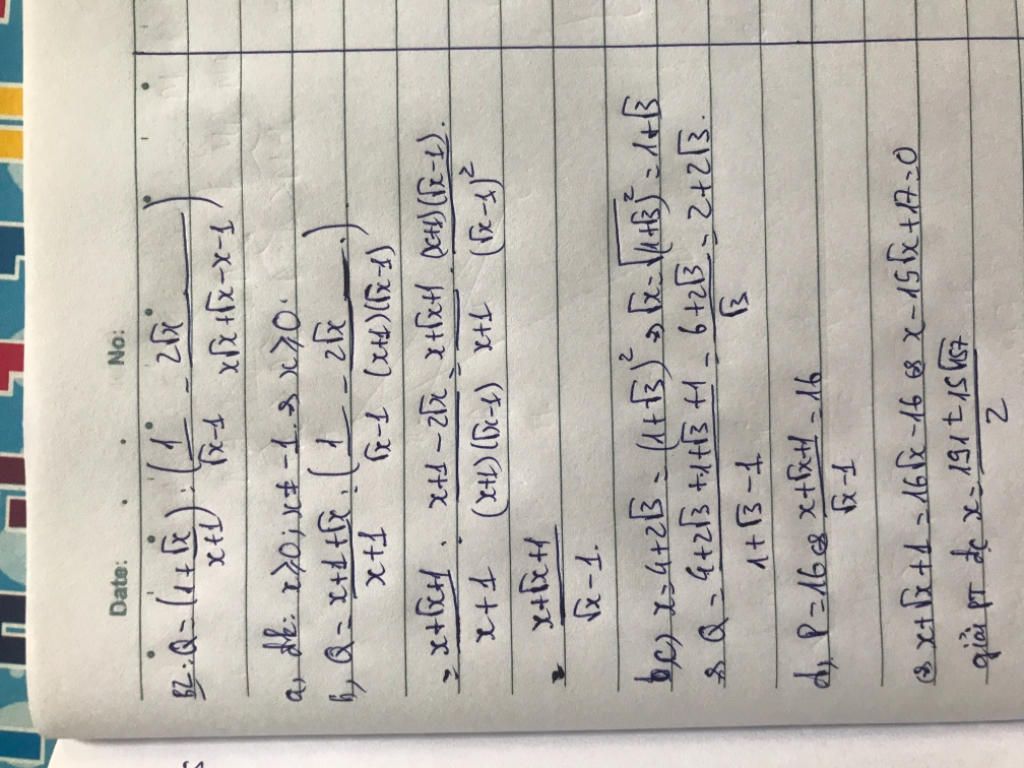 Date: No:
B2: Q = (1 + √x/x+1) : (1/√x-1 - 2√x/x√x+√x-x-1)
a, đk: x ≥ 0; x ≠ -1 => x ≥ 0.
b, Q = x+1+√x/x+1 : (1/√x-1 - 2√x/(x+1)(√x-1))
= x+√x+1/x+1 : x+1-2√x/(x+1)(√x-1) = x+√x+1/x+1 . (x+1)(√x-1)/(√x-1)²
= x+√x+1/√x-1.
c, x = 4+2√3 = (1+√3)² => √x = √(1+√3)² = 1+√3
=> Q = 4+2√3+1+√3+1/1+√3-1 = 6+2√3/√3 = 2+2√3.
d, P = 16 <=> x+√x+1/√x-1 = 16
<=> x+√x+1 = 16√x-16 <=> x-15√x+17=0
giải PT đc x = 191±15√157/2